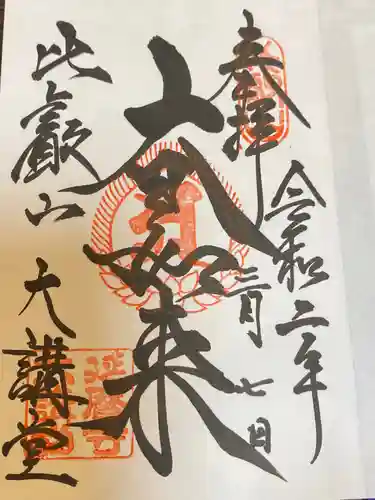 奉拝
令和二年
三月七日
大日如来
比叡山
大講堂